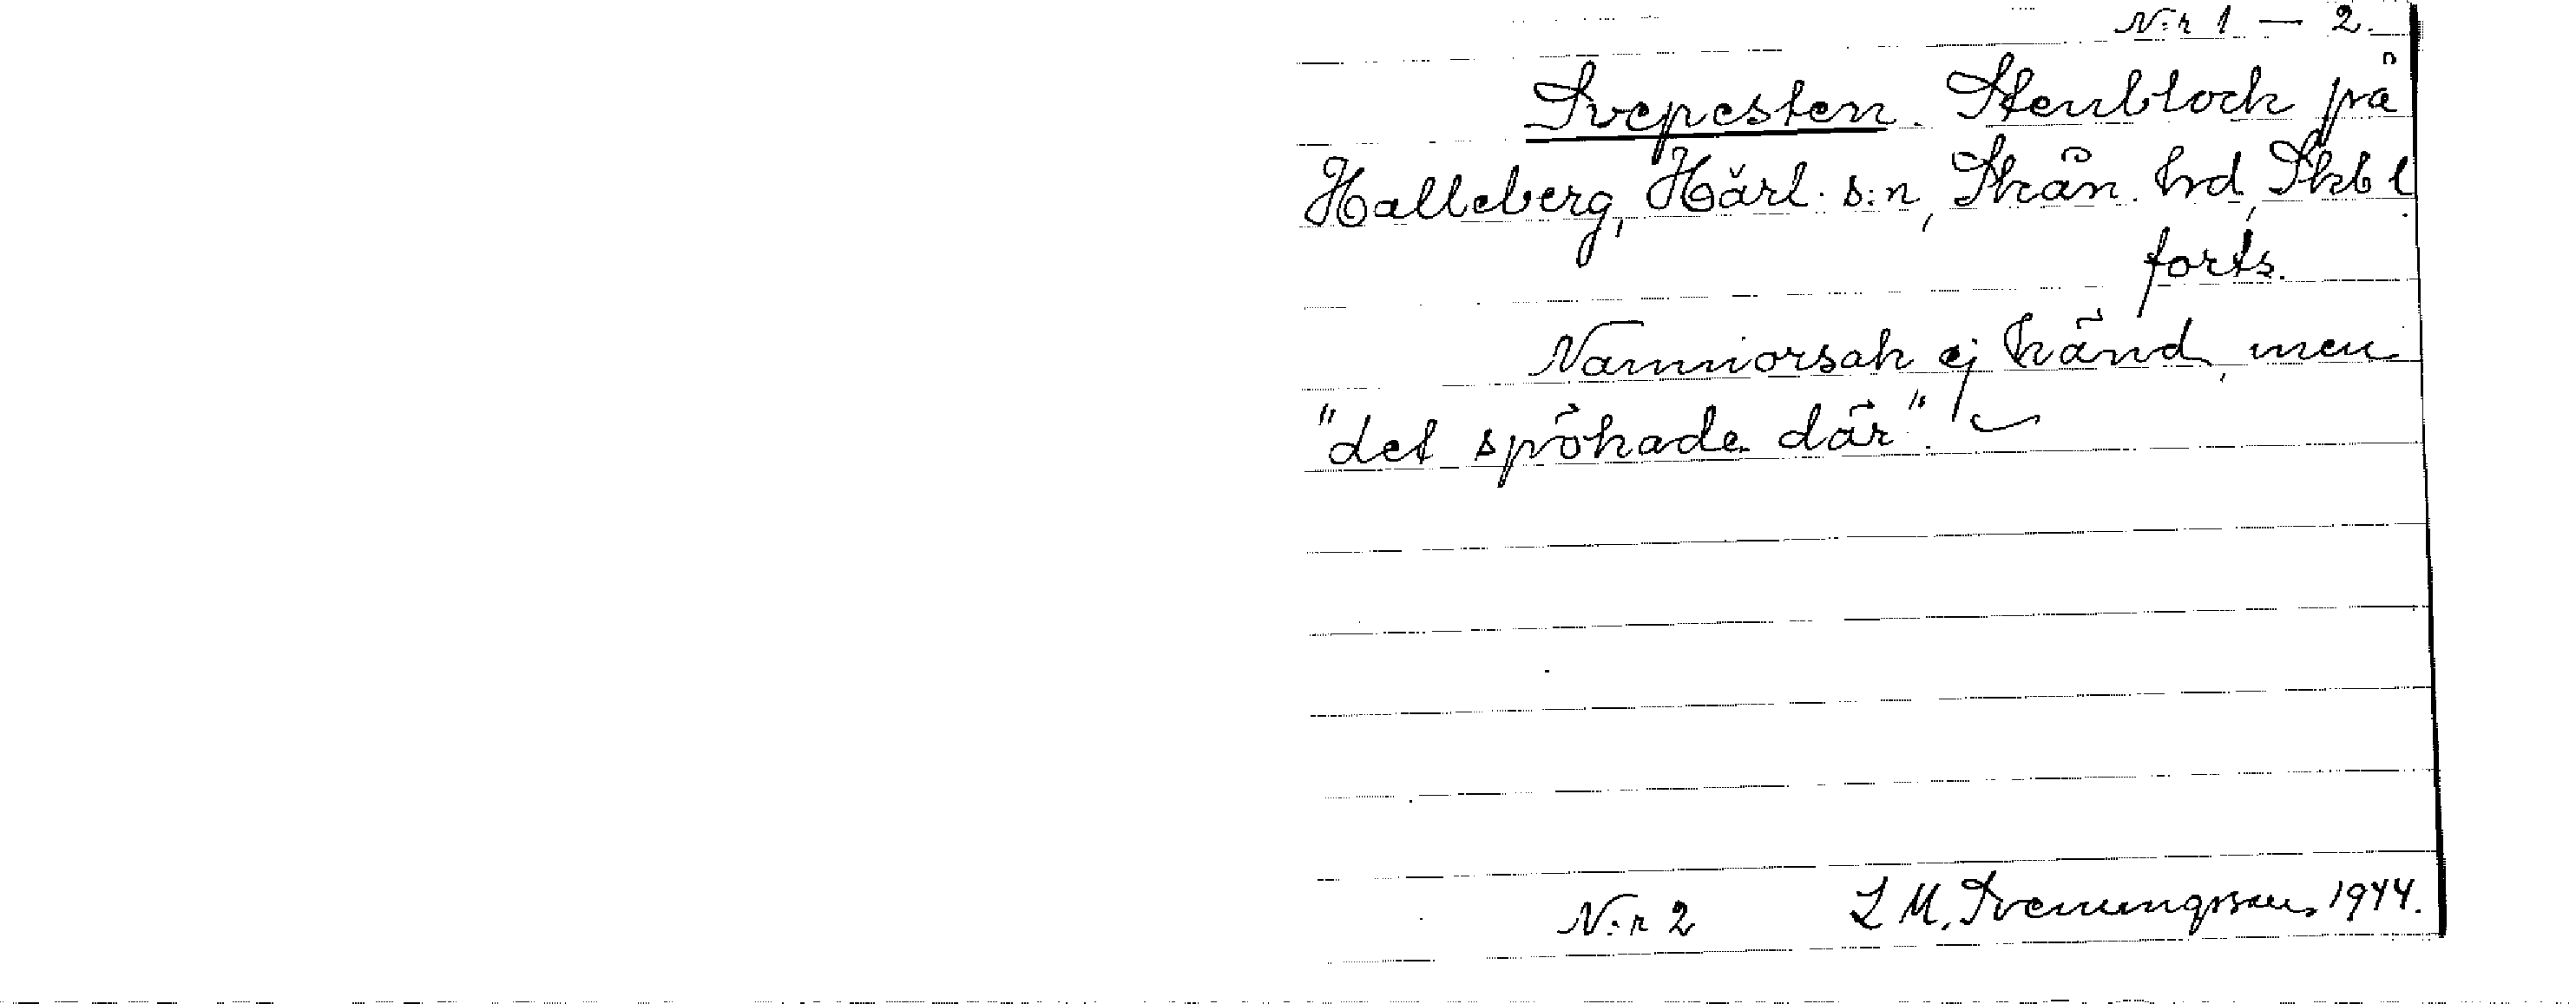 N:r 1 — 2.
Svepesten. Stenblock på
Halleberg, Härl. s:n, Skån. hrd, Skbl
forts.
Namnorsak ej känd, men
"det spökade där".
N:r 2 L M. Svenungsson 1944.